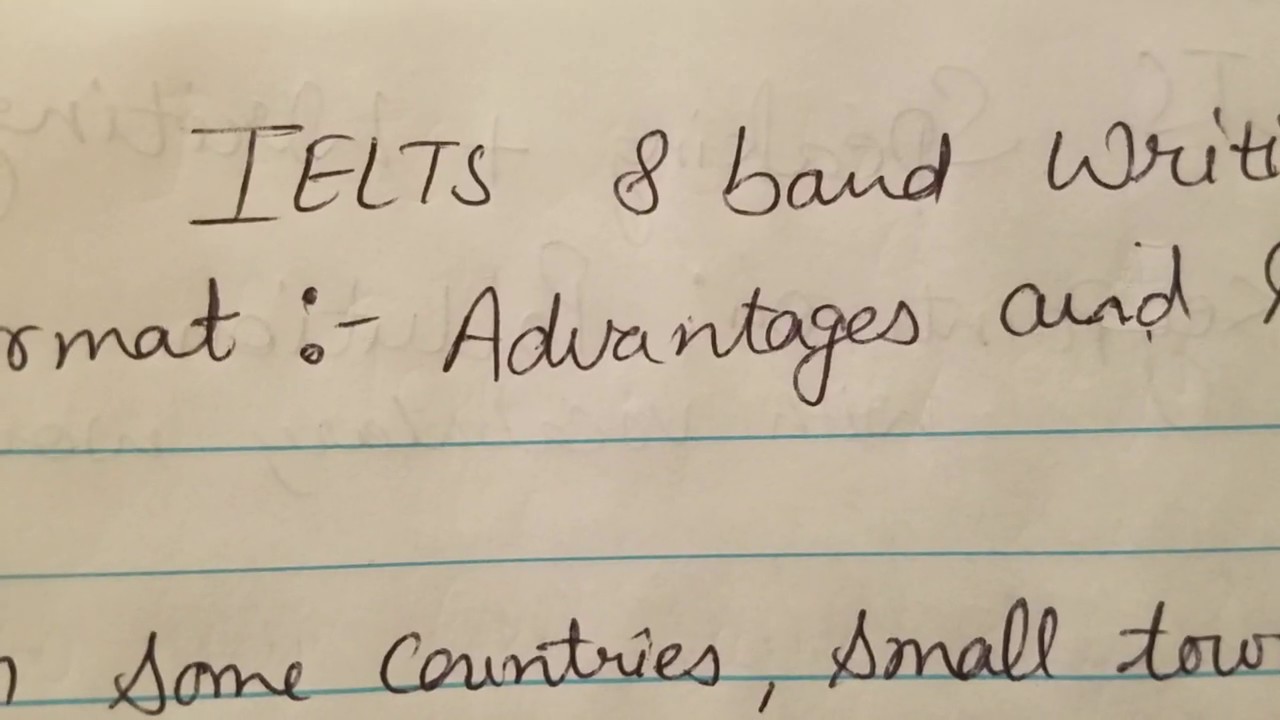 IELTS 8 band Writi
rmat :- Advantages and
Some Countries, Small tow